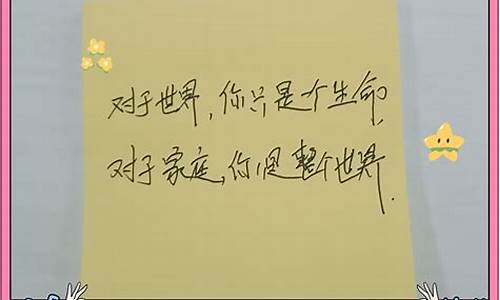 对于世界，你只是个生命，
对于家庭，你是整个世界.